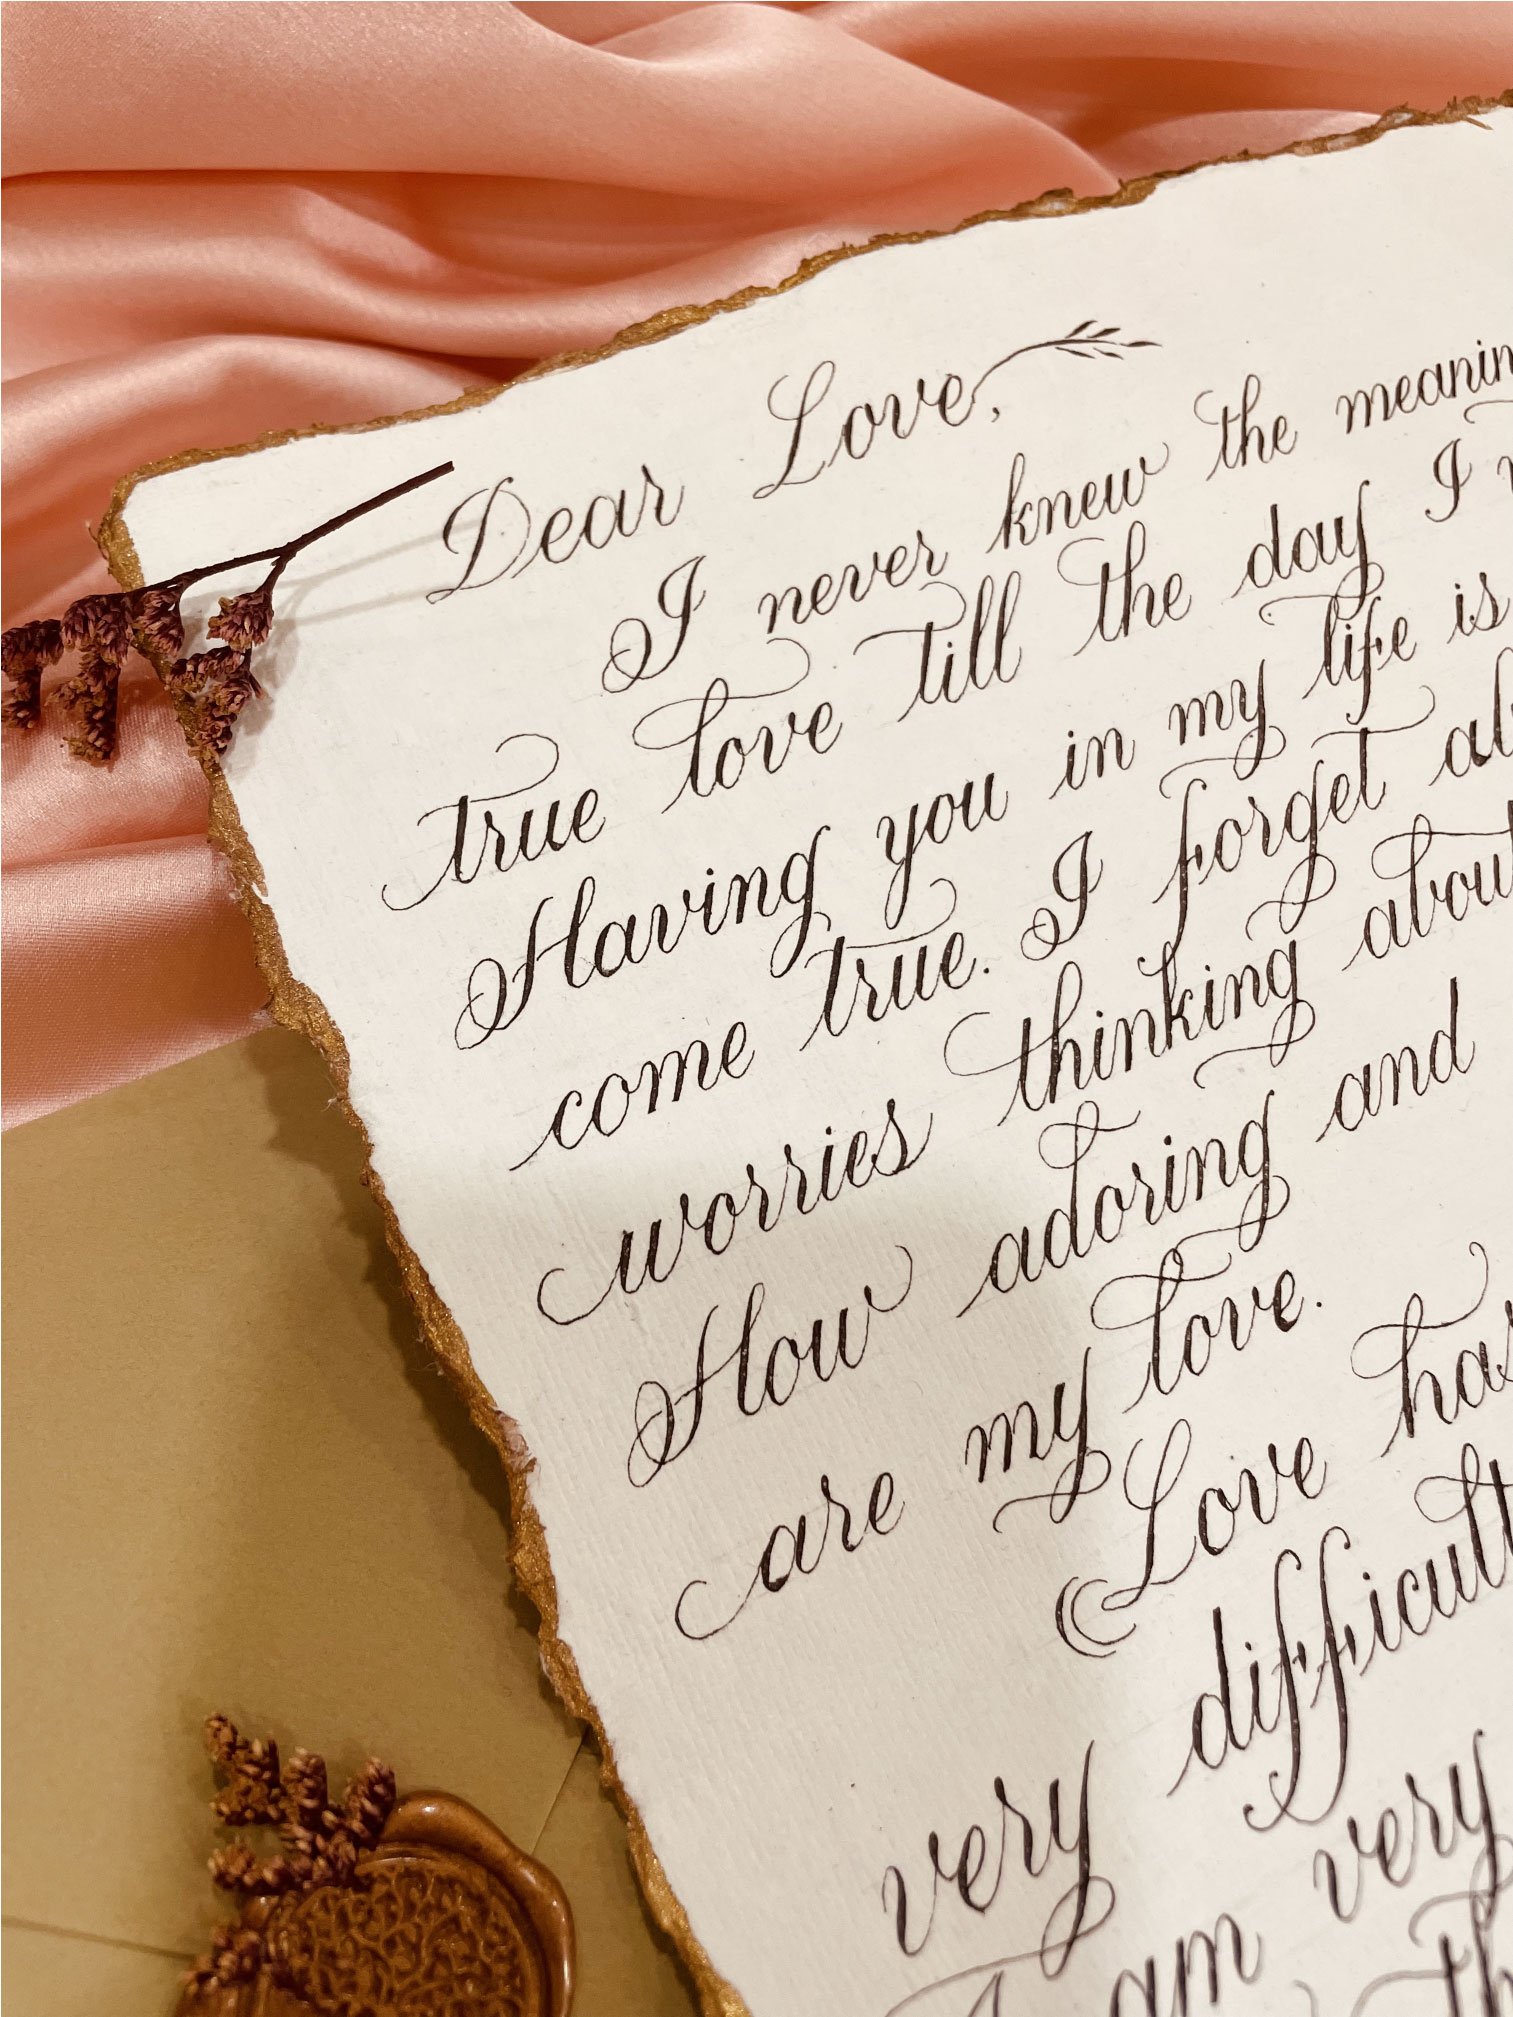 Dear Love,
I never knew the meanin
true love till the day I
Having you in my life is
come true. I forget
worries thinking about
How adoring and
are my love.
Love has
difficult
very very
am